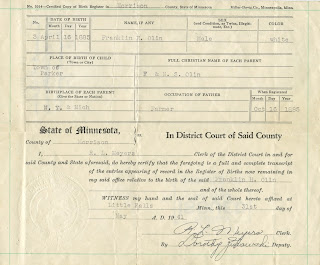 No. 1014—Certified Copy of Birth Register in Morrison County, State of Minnesota
DATE OF BIRTH
NAME, IF ANY
SEX
COLOR
No. Month Day Year
April 18 1885 Franklin H. Olin Male White
PLACE OF BIRTH OF CHILD
(Town or City)
FULL CHRISTIAN NAME OF EACH PARENT
Town of
Parker F & E. E. Olin
BIRTHPLACE OF EACH PARENT
(Give the State or Nation)
OCCUPATION OF FATHER
When Registered
Month Day Year
N. Y. & Mich Farmer Oct 15 1885
State of Minnesota,
In District Court of Said County
County of Morrison
I, Clerk of the District Court in and for
said County and State aforesaid, do hereby certify that the foregoing is a full and complete transcript
of the entries appearing of record in the Register of Births now remaining in
my said office relative to the birth of the said Franklin H. Olin
and of the whole thereof.
WITNESS my hand and the seal of said Court hereto affixed at
Little Falls Minn., this 31st day of
May A. D. 19
Clerk.
By Dorothy Deputy.